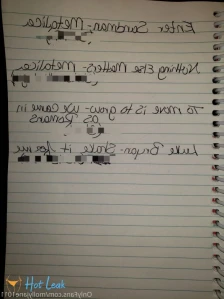 Enter Sandman- Metalica
Nothing Else Matters- Metalica
To move is to grow- we came in
as Romans
Luke Bryan- Shake it for me
Hot Leak